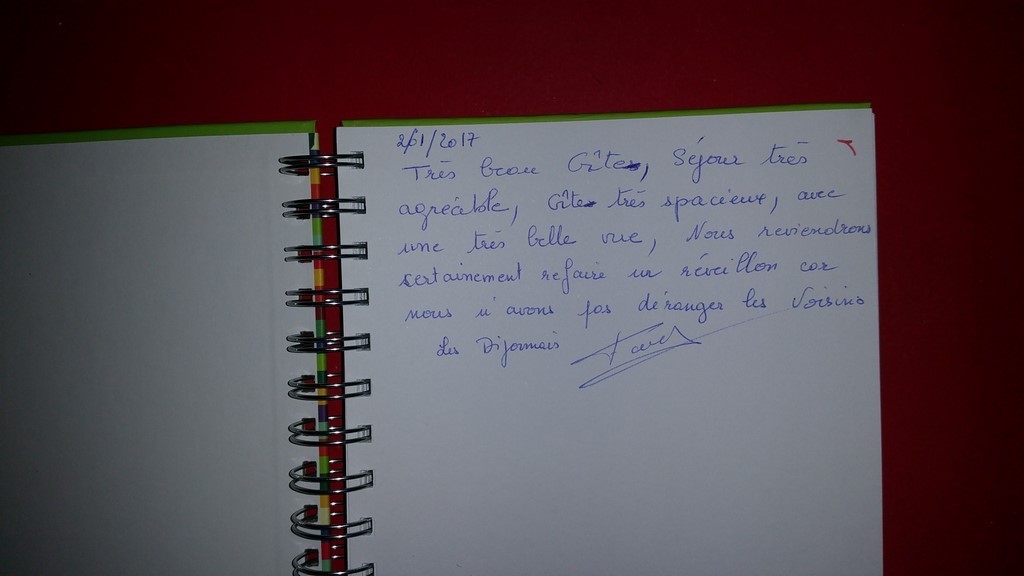 2/01/2017
Très beau Gîte, Séjour très
agréable, Gîte très spacieux, avec
une très belle vue, Nous reviendrons
certainement refaire un réveillon car
nous n'avons pas déranger les Voisins
Les Dijonnais